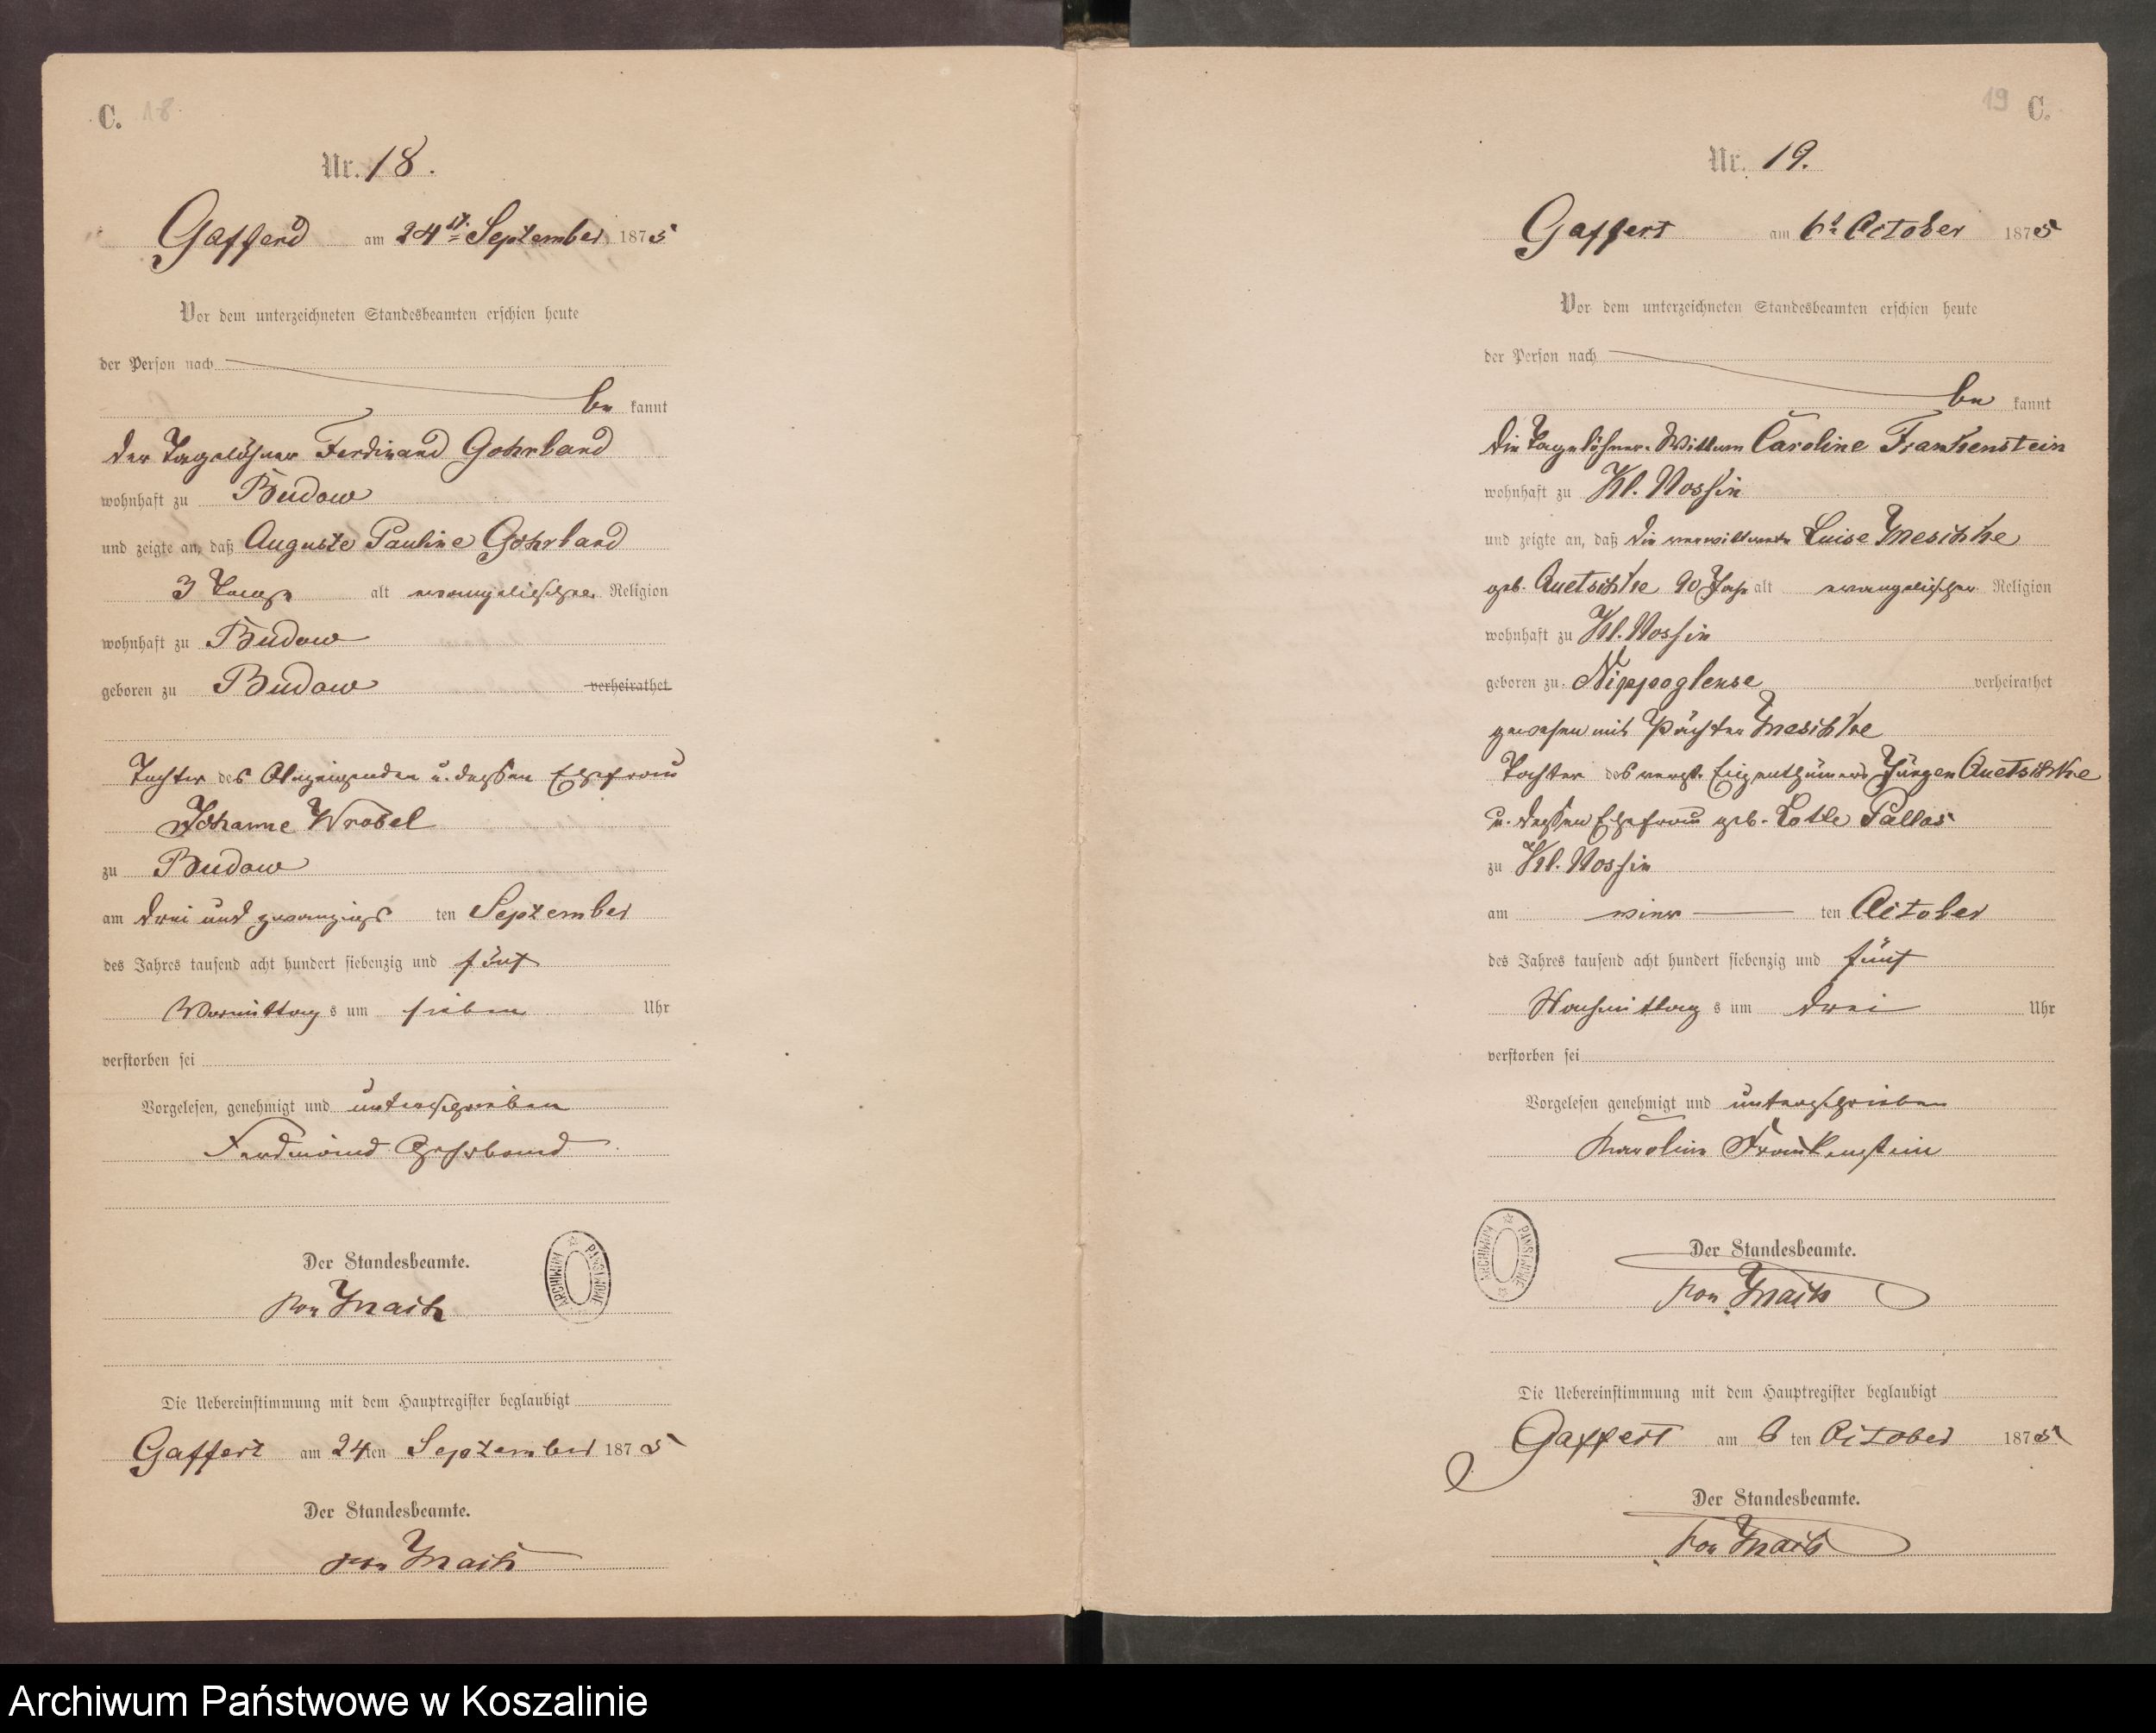 C. 18.
Nr. 18.
Gaffert am 24st. September 1875
Vor dem unterzeichneten Standesbeamten erschien heute
der Person nach
be kannt
der Tagelöhner Ferdinand Gohrband
wohnhaft zu Budow
und zeigte an, daß Auguste Pauline Gohrband
3 Tage alt evangelischer Religion
wohnhaft zu Budow
geboren zu Budow verheirathet
Tochter des Anzeigenden u. dessen Ehefrau
Johanne Wrobel
zu Budow
am drei und zwanzigs ten September
des Jahres tausend acht hundert siebenzig und fünf
Vormittag s um sieben Uhr
verstorben sei
Vorgelesen, genehmigt und unterschrieben
Ferdinand Gohrband
Der Standesbeamte.
von
ARCHIWUM PAŃSTWOWE
Die Uebereinstimmung mit dem Hauptregister beglaubigt
Gaffert am 24ten September 1875
Der Standesbeamte.
von
19 C.
Nr. 19.
Gaffert am 6t October 1875
Vor dem unterzeichneten Standesbeamten erschien heute
der Person nach
be kannt
die Tagelöhner-Wittwe Caroline Frankenstein
wohnhaft zu Kl. Nossin
und zeigte an, daß die verwittwete Luise Meschke
geb. Quetschke 90 Jahr alt evangelischer Religion
wohnhaft zu Kl. Nossin
geboren zu Nippoglense verheirathet
gewesen mit Pächter Meschke
Tochter des verst. Eigenthümers Jürgen Quetschke
u. dessen Ehefrau geb. Lotte Pallas
zu Kl. Nossin
am ten October
des Jahres tausend acht hundert siebenzig und fünf
Nachmittag s um drei Uhr
verstorben sei
Vorgelesen genehmigt und unterschrieben
Karoline Frankenstein
ARCHIWUM PAŃSTWOWE
Der Standesbeamte.
von
Die Uebereinstimmung mit dem Hauptregister beglaubigt
Gaffert am 6 ten October 1875
Der Standesbeamte.
von
Archiwum Państwowe w Koszalinie